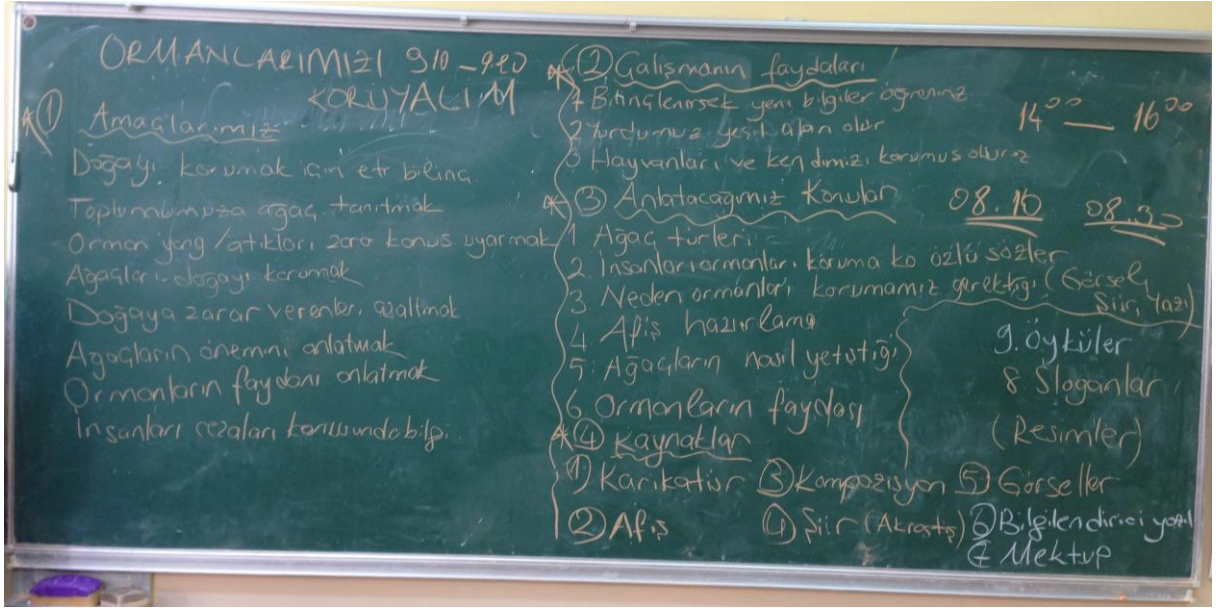 ORMANLARIMIZI 910-920
KORUYALIM
① Amaçlarımız
Doğayı korumak için etr bilinç
Toplumumuza ağaç tanıtmak
Orman yang/atıkları zara konus uyarmak
Ağaçları-doğayı korumak
Doğaya zarar verenler, azaltmak
Ağaçların önemini anlatmak
Ormanların faydanı anlatmak
İnsanları cezaları konusunda bilg.
② Çalışmanın faydaları
1 Bilinçlenirsek yeni bilgiler öğreniriz
2 Yurdumuz yeşil alan olur
3 Hayvanları ve kendimizi korumuş oluruz
14⁰⁰ — 16⁰⁰
③ Anlatacağımız Konular
08.10 08.30
1 Ağaç türleri
2. İnsanları ormanları koruma ko özlü sözler
3 Neden ormanları korumamız gerektiği (Görsel,
Şiir, Yazı)
4. Afiş hazırlama
5. Ağaçların nasıl yetiştiği
6 Ormanların faydası
9. Öyküler
8 Sloganlar
(Resimler)
④ Kaynaklar
① Karikatür ③ Kompozisyon ⑤ Görseller
② Afiş ④ Şiir (Akrostiş) ⑥ Bilgilendirici yazıl
7 Mektup